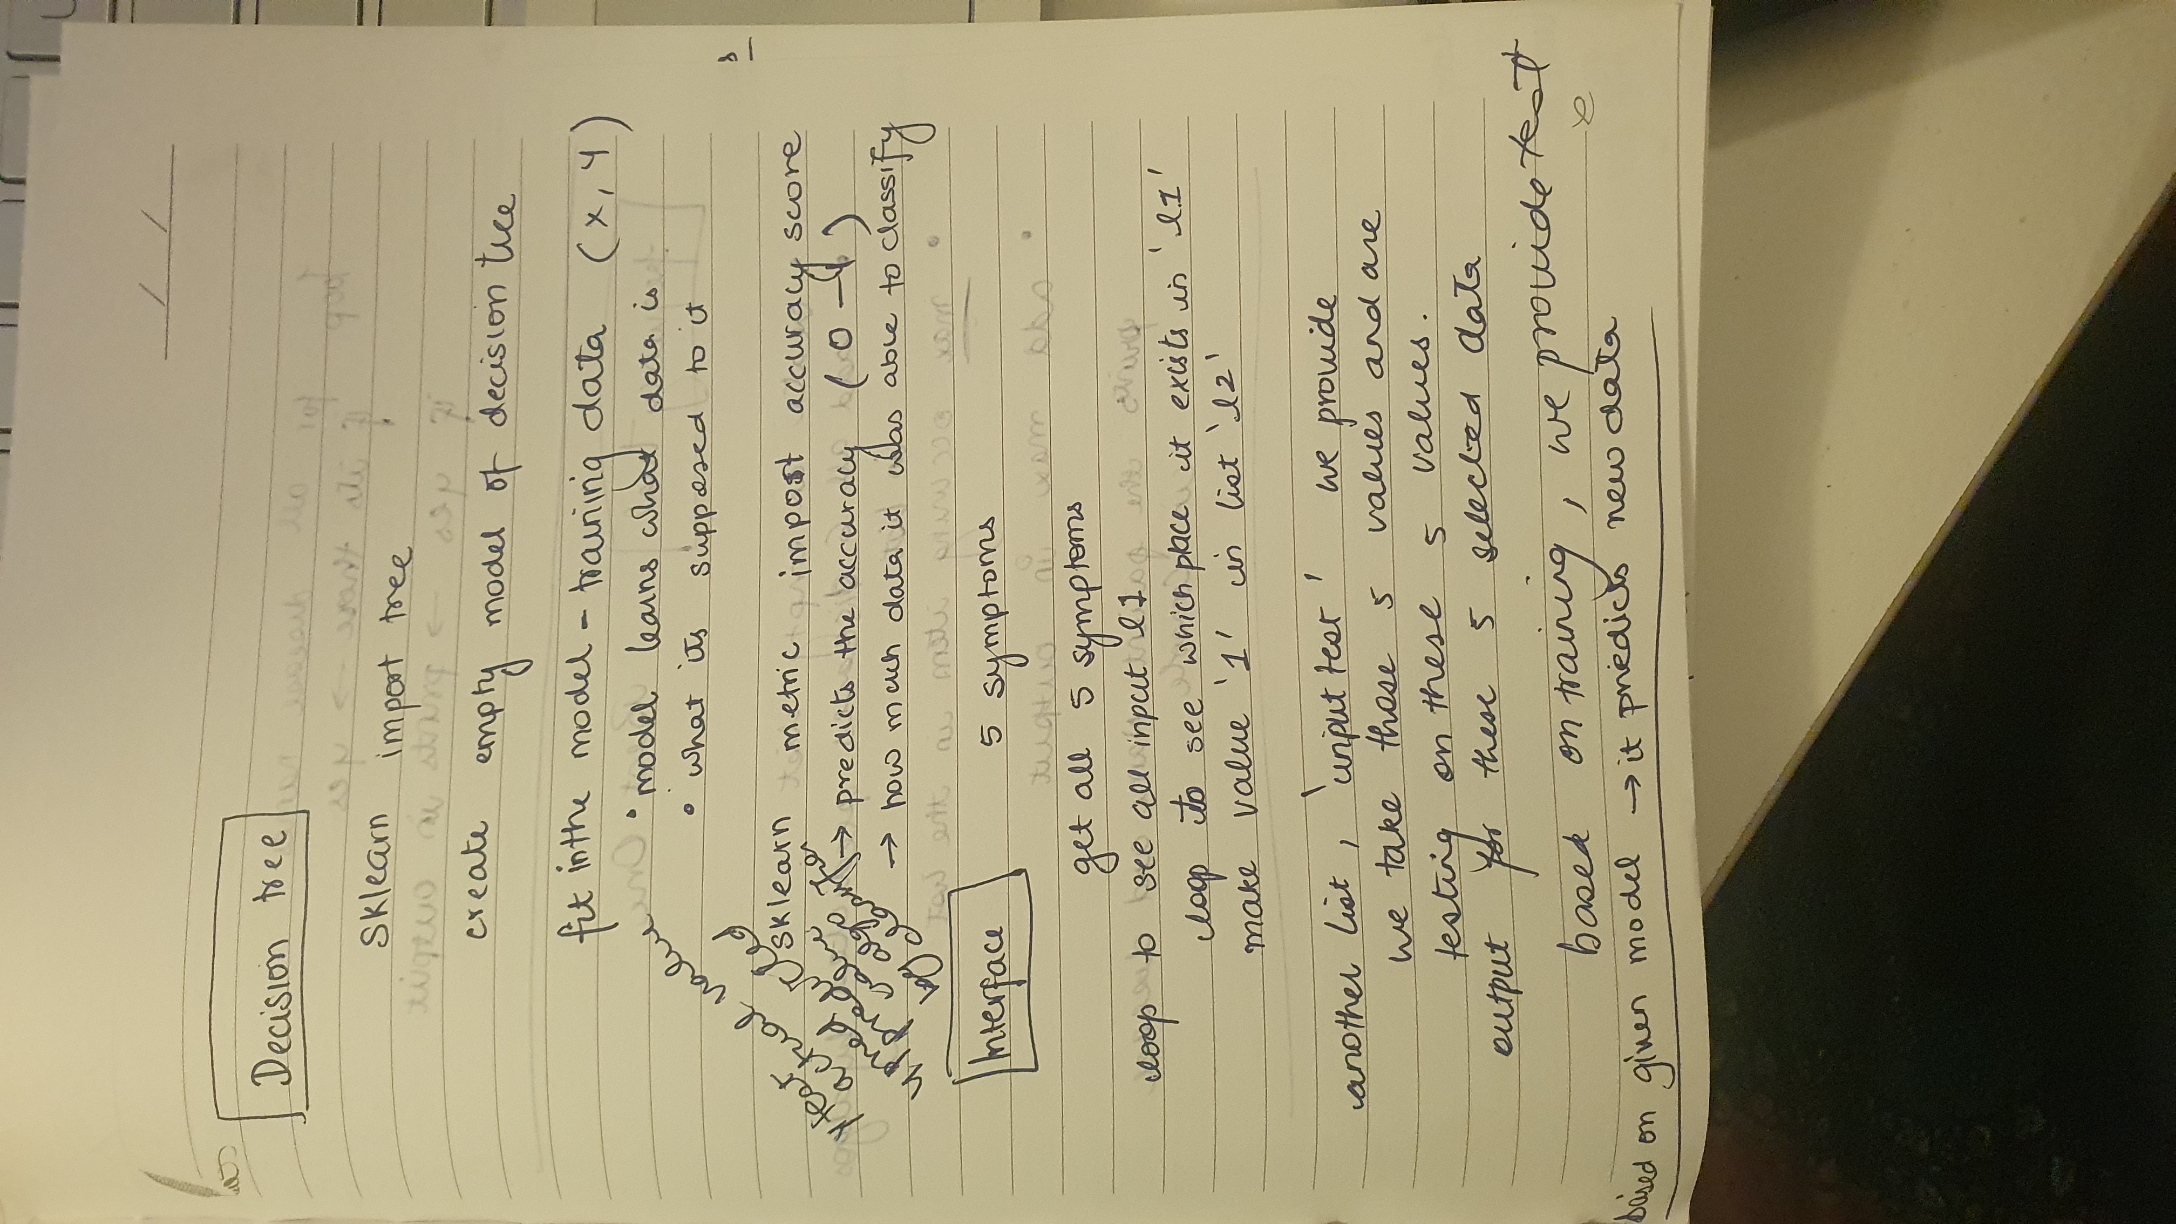 Decision tree
SKlearn import tree
create empty model of decision tree
fit inthe model - training data (x, y)
• model learns what data is
• what its supposed to it
SKlearn metric import accuracy score
→ predicts the accuracy (0 - 1)
→ how much data it was able to classify
Interface 5 symptoms
get all 5 symptoms
loop to see all input l1
loop to see which place it exists in 'l1'
make value '1' in list 'l2'
another list, 'input test' we provide
we take these 5 values and are
testing on these 5 values.
output for these 5 selected data
based on training, we provide test
based on given model → it predicts new data